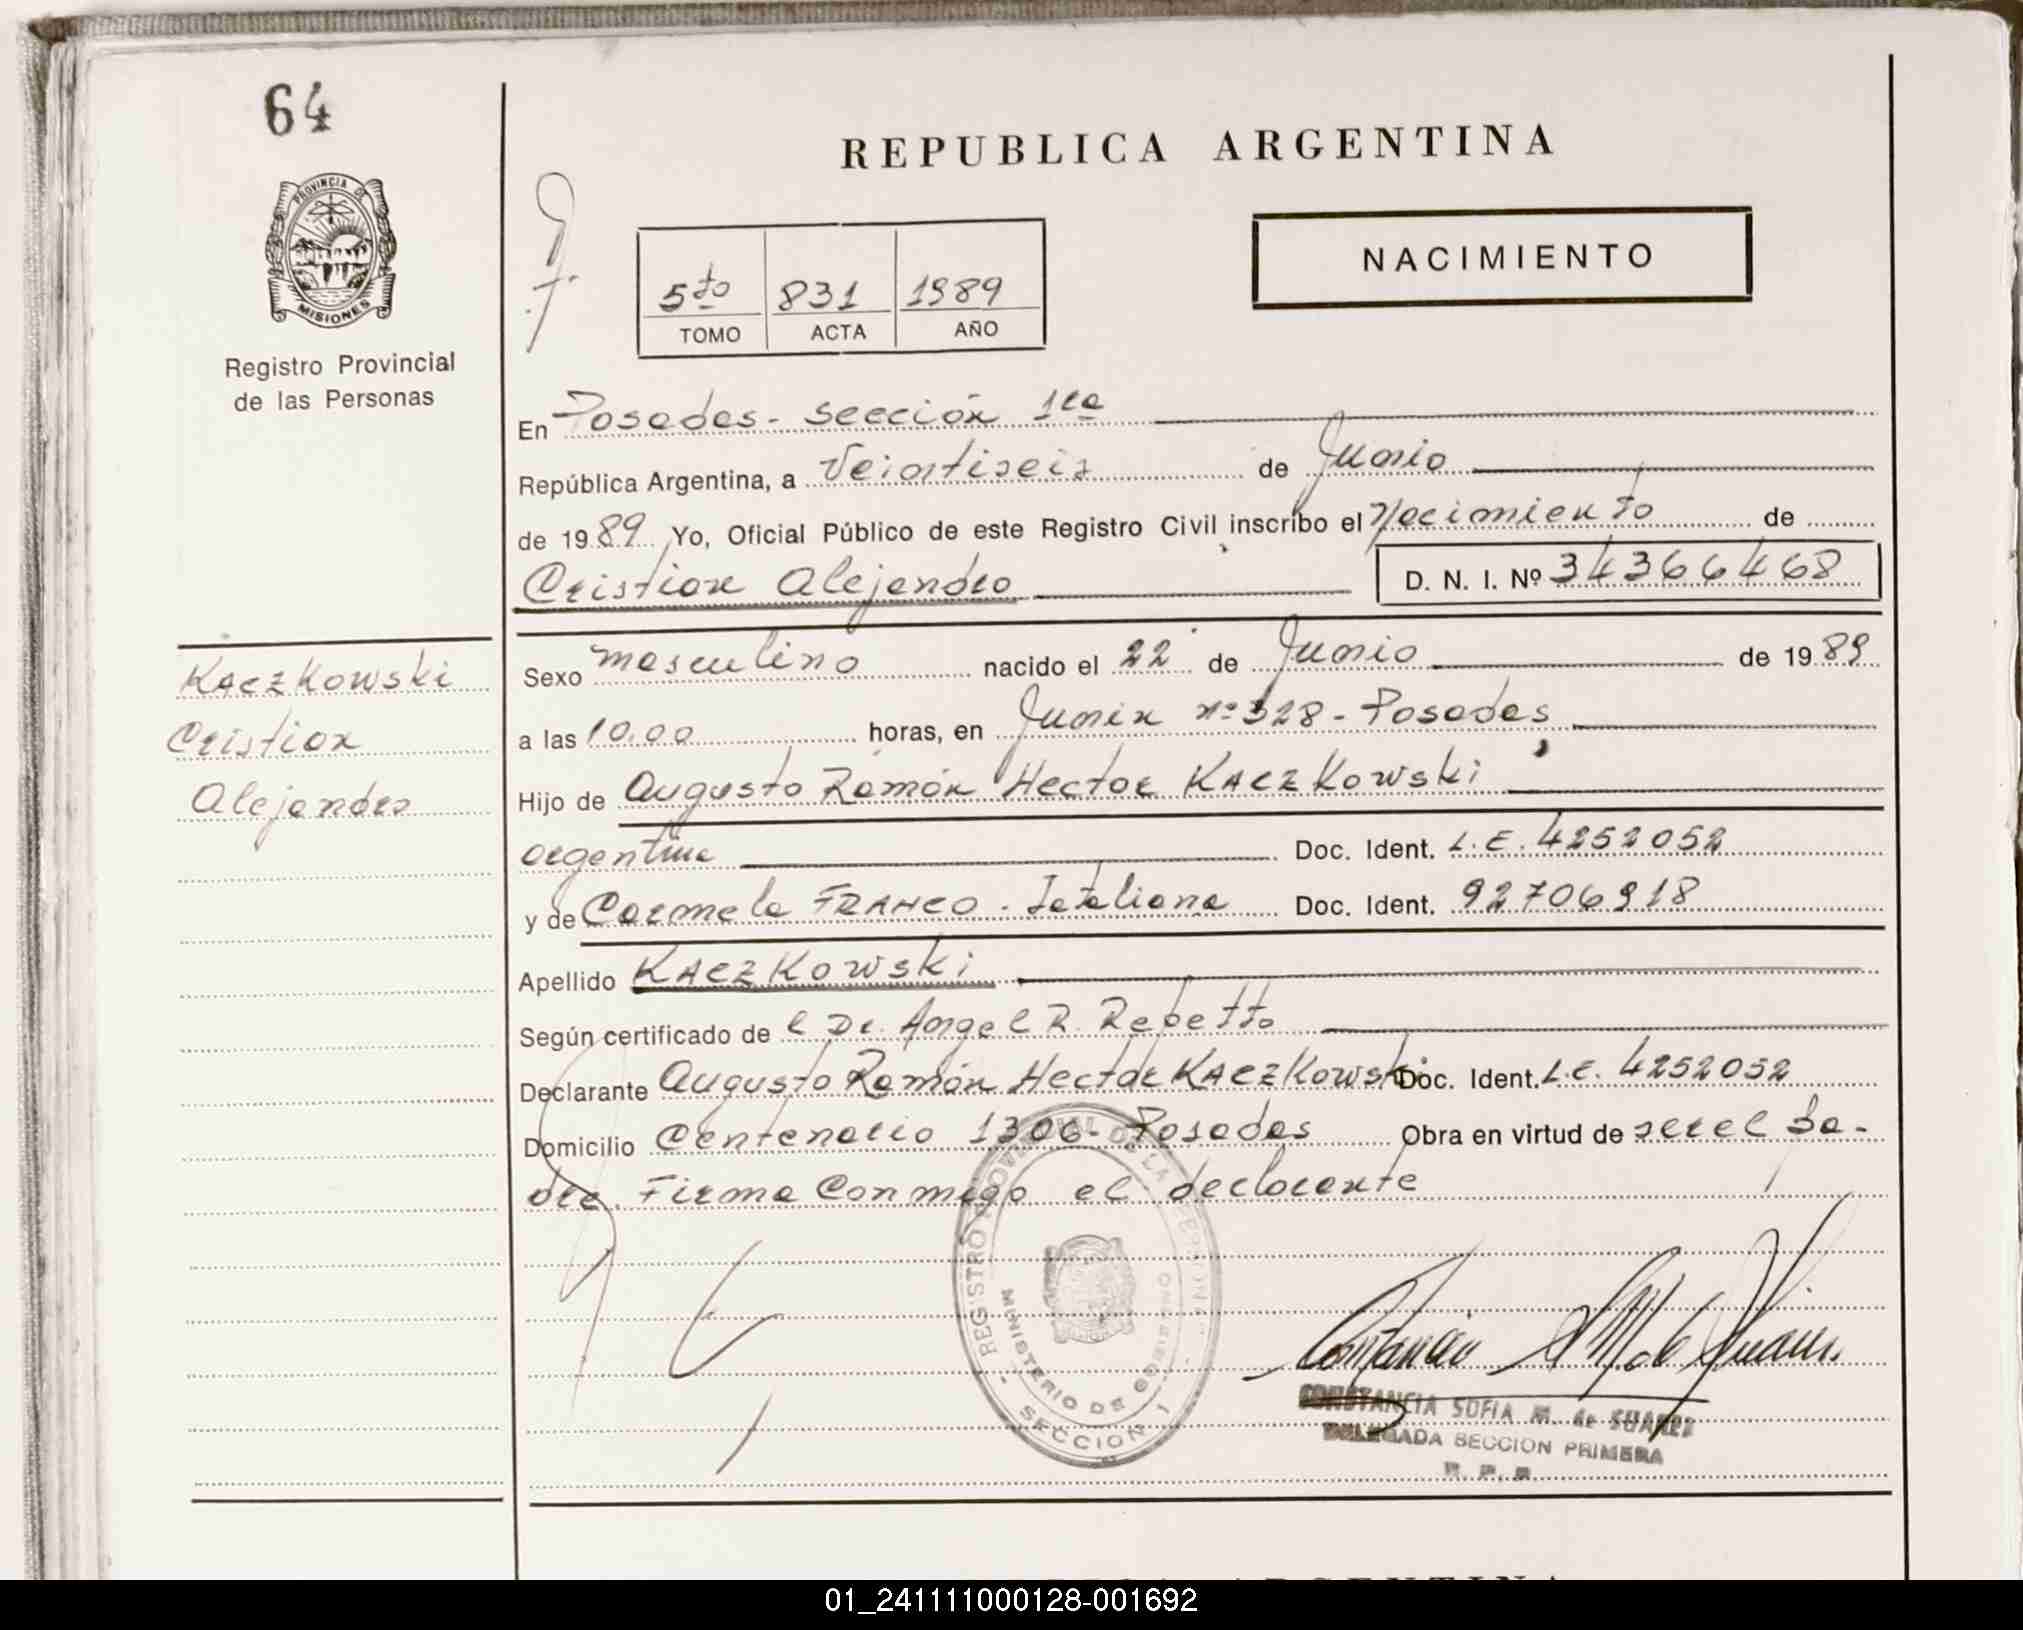 64
PROVINCIA DE
MISIONES
Registro Provincial
de las Personas
REPUBLICA ARGENTINA
NACIMIENTO
5to 831 1989
TOMO ACTA AÑO
En Posadas - Sección 1ra
República Argentina, a Veintiseis de Junio
de 1989 Yo, Oficial Público de este Registro Civil inscribo el Nacimiento de
Cristian Alejandro D. N. I. Nº 34366468
Kaczkowski
Cristian
Alejandro
Sexo masculino nacido el 22 de Junio de 1989
a las 10.00 horas, en Junin nº 328 - Posadas
Hijo de Augusto Ramón Hector Kaczkowski
argentino Doc. Ident. L.E. 4252052
y de Carmela FRANCO - Itataliana Doc. Ident. 92706918
Apellido Kaczkowski
Según certificado de l Dr. Angel R. Rebetto
Declarante Augusto Ramón Hector Kaczkowski Doc. Ident. L.E. 4252052
Domicilio Centenario 1306 - Posadas Obra en virtud de ser el Pa-
dre. Firma Conmigo el declarante
REGISTRO PROVINCIAL DE LAS PERSONAS
MINISTERIO DE GOBIERNO
SECCION 1
Constancia S M. de Suarez
CONSTANCIA SOFIA M. de SUAREZ
DELEGADA SECCION PRIMERA
R. P. P.
01_241111000128-001692